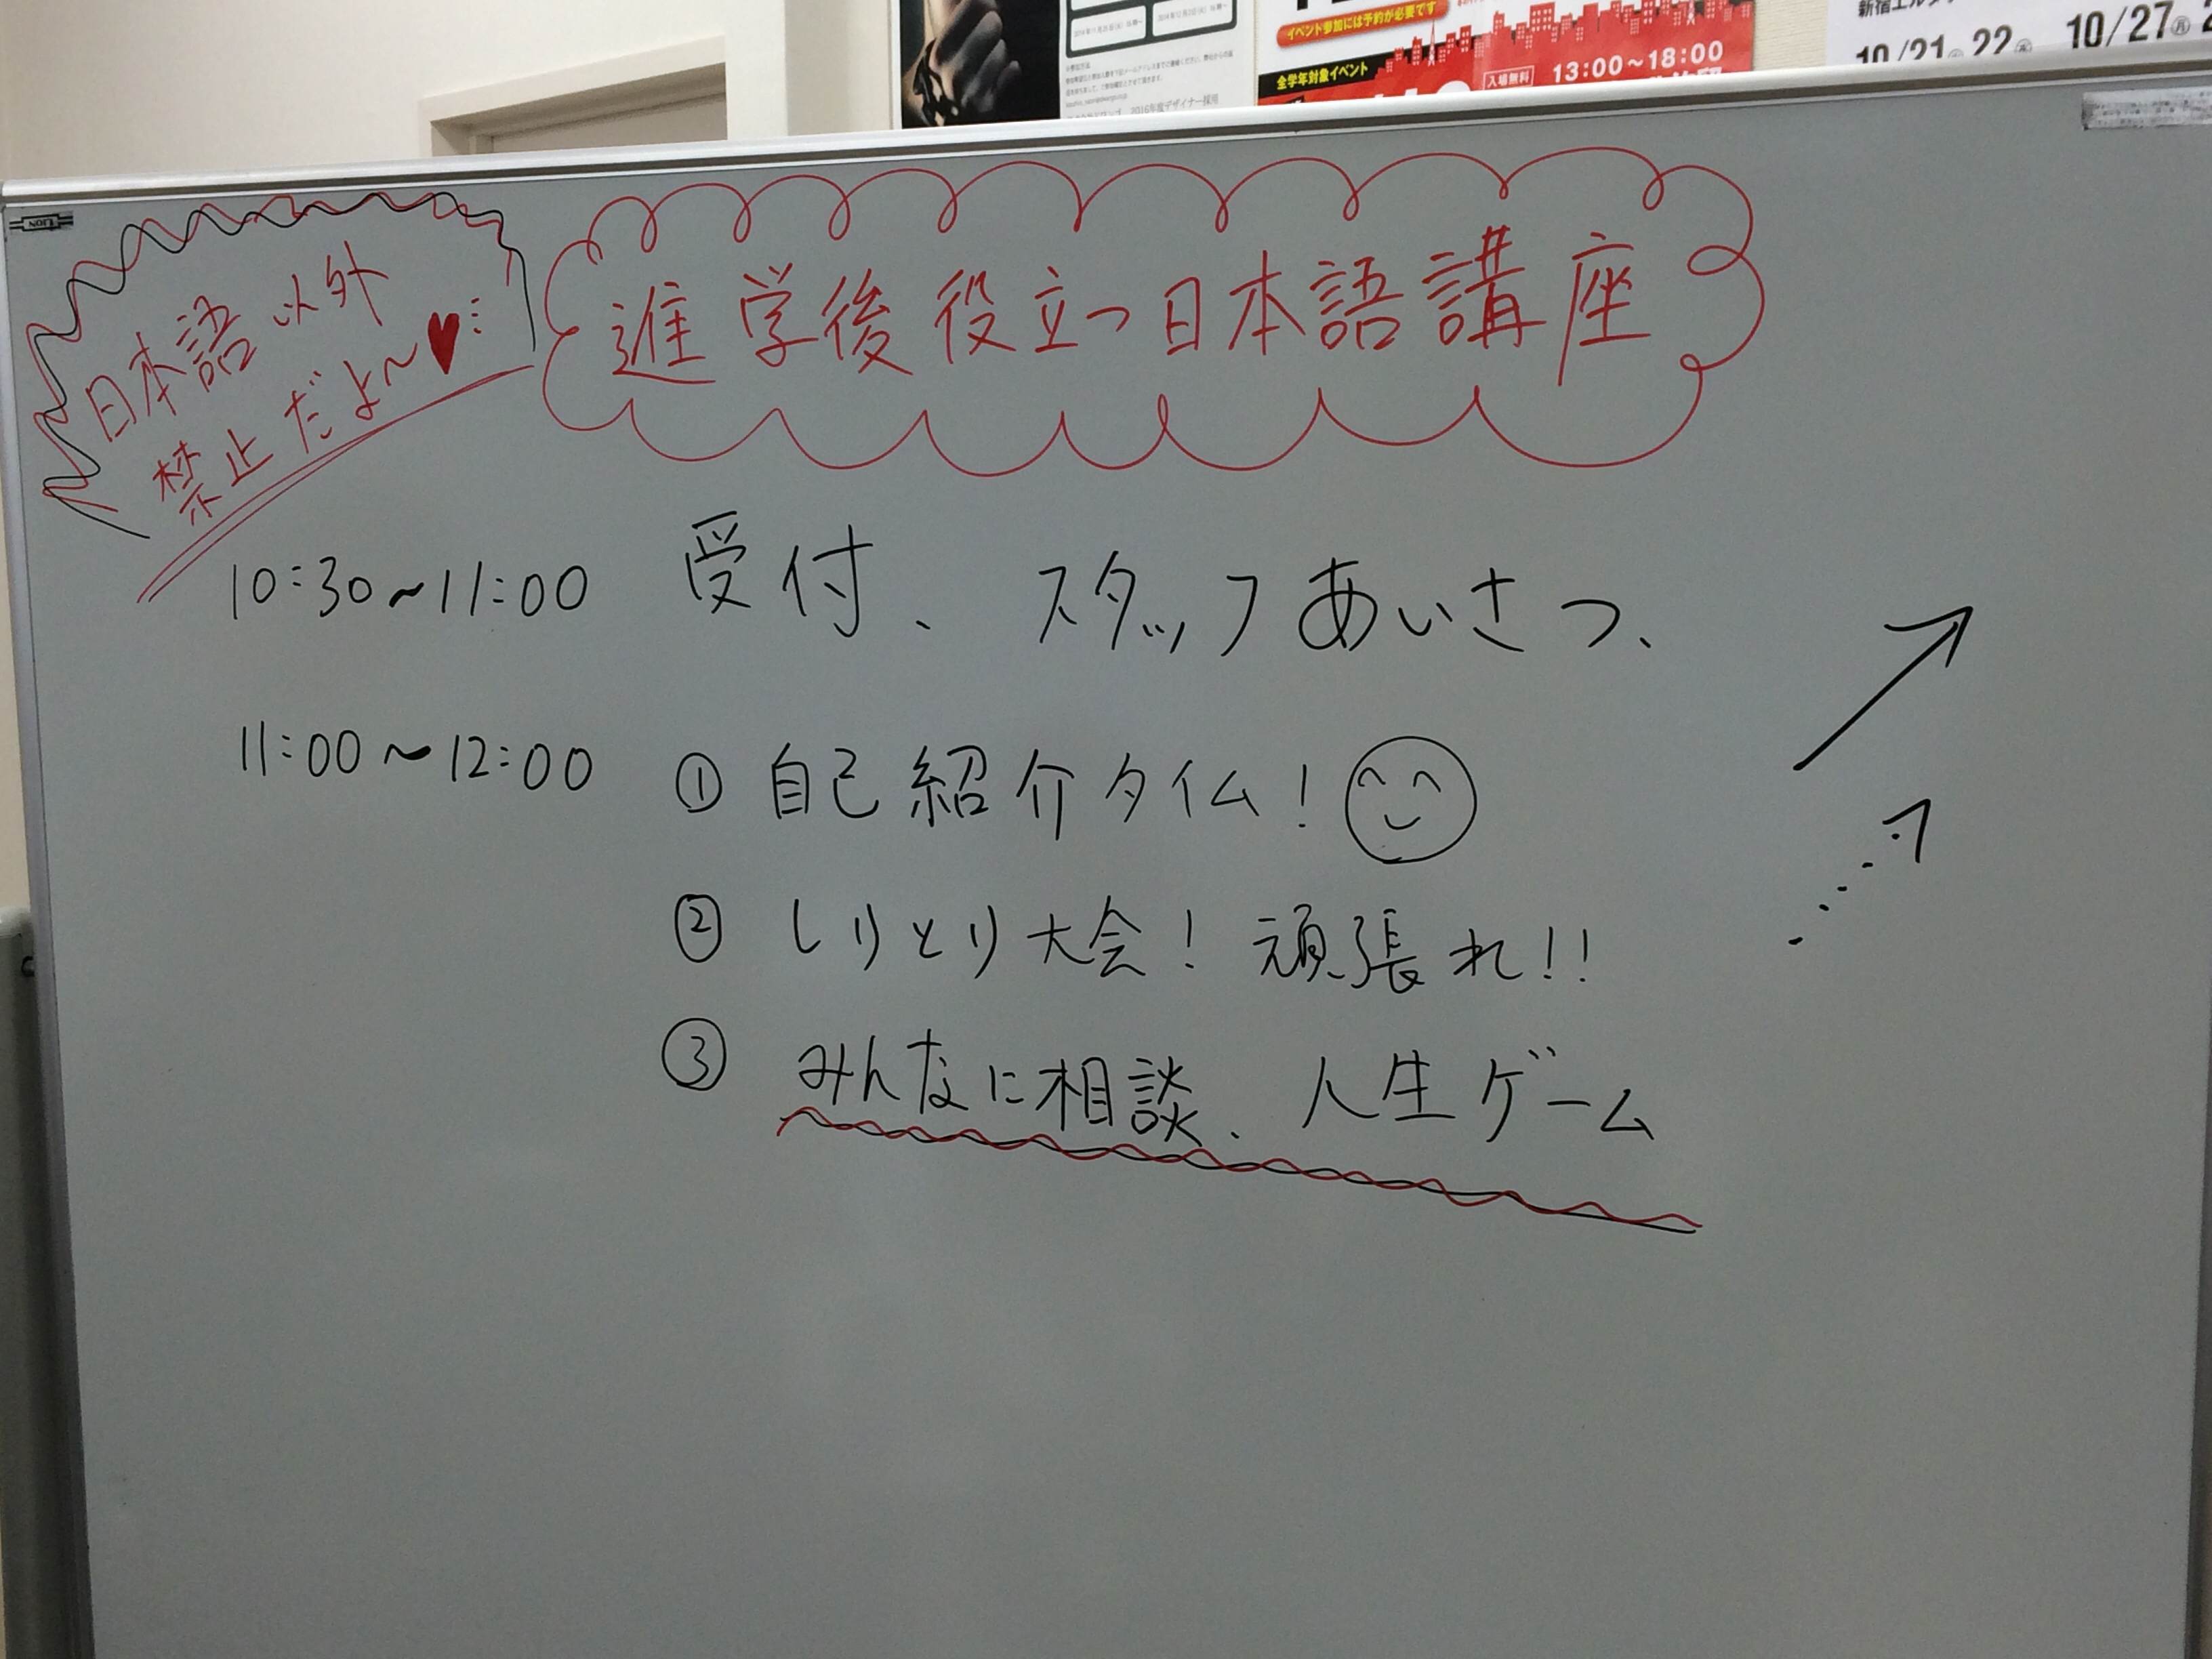 イベント参加には予約が必要です
全学年対象イベント
入場無料 13:00～18:00
2016年度デザイナー採用
10/21 22 10/27㊊
LION
日本語以外
禁止だよ～♥
進学後役立つ日本語講座
10:30～11:00 受付、スタッフあいさつ、
11:00～12:00 ①自己紹介タイム!
②しりとり大会! 頑張れ!!
③みんなに相談、人生ゲーム